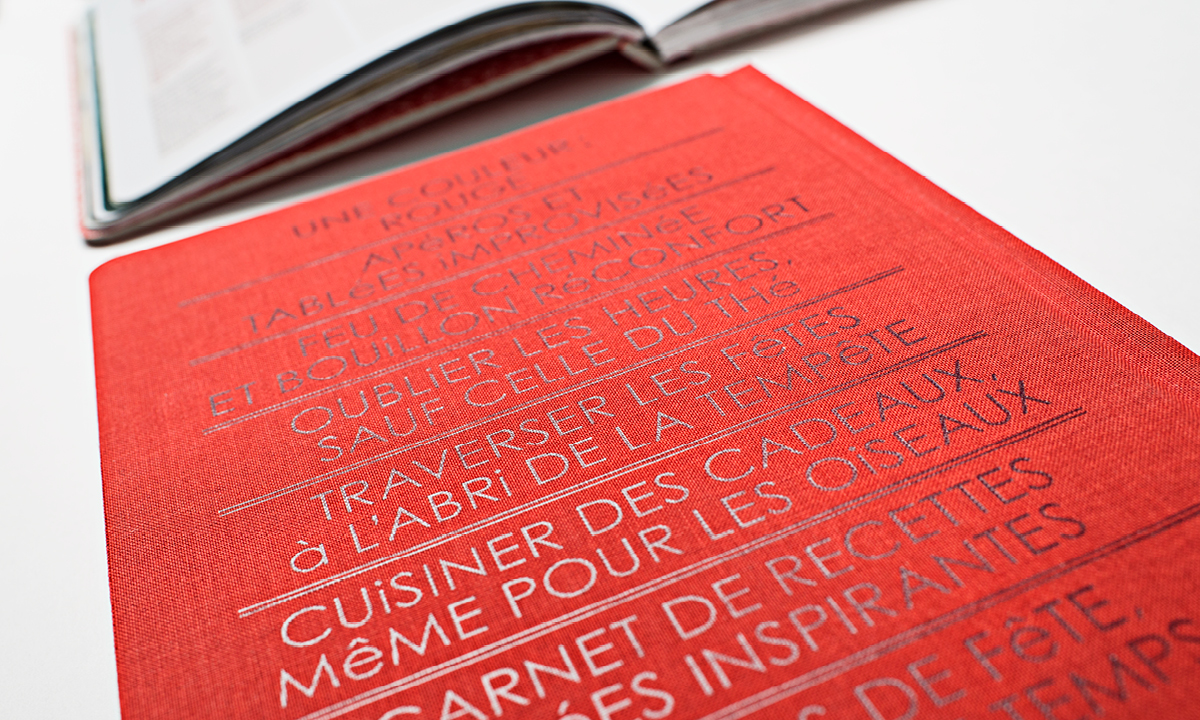 UNE COULEUR,
ROUGE
APéROS ET
TABLéES iMPROViSéES
FEU DE CHEMiNéE
ET BOUiLLON RéCONFORT
OUBLiER LES HEURES,
SAUF CELLE DU THé
TRAVERSER LES FêTES
à L'ABRi DE LA TEMPêTE
CUiSiNER DES CADEAUX,
MêME POUR LES OiSEAUX
CARNET DE RECETTES
INSPIRANTES
DE FêTE,
TEMPS